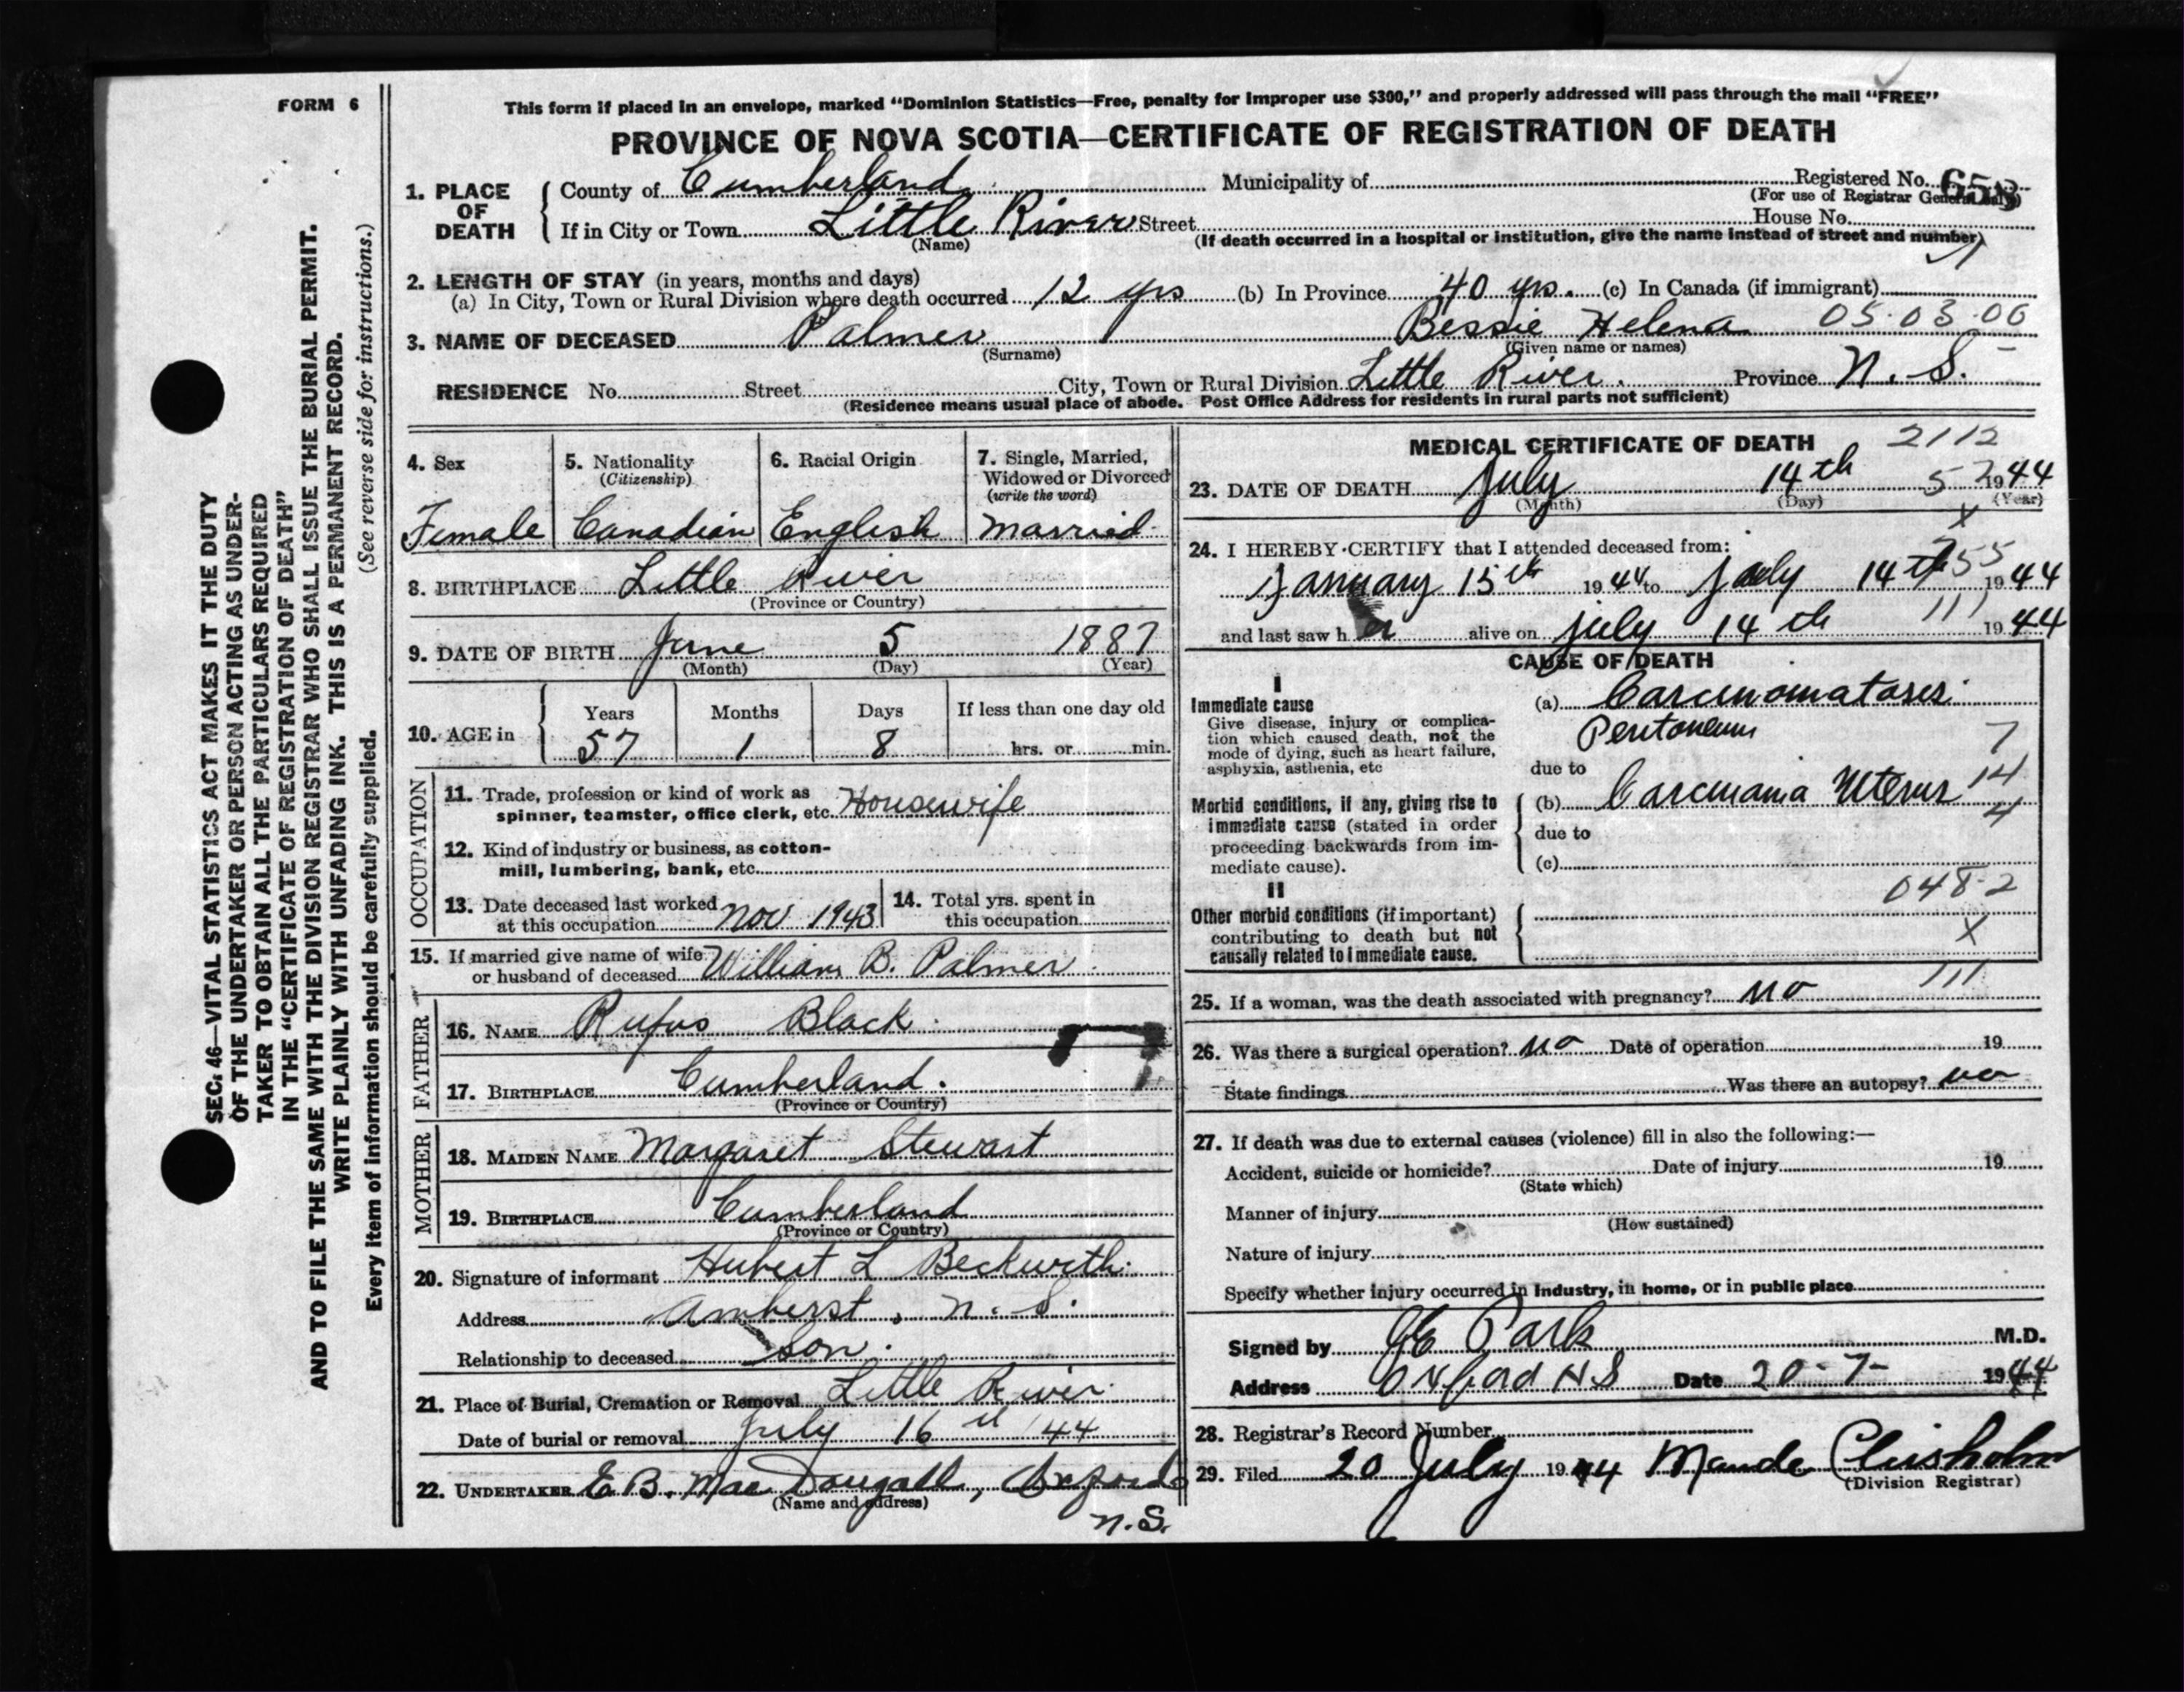 FORM 6
This form if placed in an envelope, marked “Dominion Statistics—Free, penalty for improper use $300,” and properly addressed will pass through the mail “FREE”
PROVINCE OF NOVA SCOTIA—CERTIFICATE OF REGISTRATION OF DEATH
SEC. 46—VITAL STATISTICS ACT MAKES IT THE DUTY
OF THE UNDERTAKER OR PERSON ACTING AS UNDER-
TAKER TO OBTAIN ALL THE PARTICULARS REQUIRED
IN THE “CERTIFICATE OF REGISTRATION OF DEATH”
AND TO FILE THE SAME WITH THE DIVISION REGISTRAR WHO SHALL ISSUE THE BURIAL PERMIT.
WRITE PLAINLY WITH UNFADING INK. THIS IS A PERMANENT RECORD.
(See reverse side for instructions.)
Every item of information should be carefully supplied.
1. PLACE OF DEATH County of Cumberland Municipality of Registered No.
(For use of Registrar General only)
If in City or Town Little River Street House No.
(Name) (If death occurred in a hospital or institution, give the name instead of street and number)
2. LENGTH OF STAY (in years, months and days)
(a) In City, Town or Rural Division where death occurred 12 yrs (b) In Province 40 yrs. (c) In Canada (if immigrant)
3. NAME OF DECEASED Palmer Bessie Helena 05.03.06
(Surname) (Given name or names)
RESIDENCE No. Street City, Town or Rural Division Little River. Province N. S.
(Residence means usual place of abode. Post Office Address for residents in rural parts not sufficient)
4. Sex 5. Nationality 6. Racial Origin 7. Single, Married,
(Citizenship) Widowed or Divorced
(write the word)
Female Canadian English Married
8. BIRTHPLACE Little River
(Province or Country)
9. DATE OF BIRTH June 5 1887
(Month) (Day) (Year)
10. AGE in Years Months Days If less than one day old
57 1 8 hrs. or min.
OCCUPATION
11. Trade, profession or kind of work as
spinner, teamster, office clerk, etc. Housewife
12. Kind of industry or business, as cotton-
mill, lumbering, bank, etc.
13. Date deceased last worked
at this occupation Nov 1943
14. Total yrs. spent in
this occupation
15. If married give name of wife
or husband of deceased William B. Palmer
FATHER
16. NAME Rufus Black
17. BIRTHPLACE Cumberland.
(Province or Country)
MOTHER
18. MAIDEN NAME Margaret Stewart
19. BIRTHPLACE Cumberland
(Province or Country)
20. Signature of informant Hubert L Beckwith
Address Amherst, N. S.
Relationship to deceased Son.
21. Place of Burial, Cremation or Removal Little River
Date of burial or removal July 16 44
22. UNDERTAKER E B. MacDougall, Oxford
(Name and address)
N.S.
MEDICAL CERTIFICATE OF DEATH 2112
23. DATE OF DEATH July 14th 1944
(Month) (Day) (Year)
24. I HEREBY CERTIFY that I attended deceased from:
January 15th 1944 to July 14th 1944
and last saw her alive on July 14th 1944
111
CAUSE OF DEATH
I
Immediate cause
Give disease, injury or complica-
tion which caused death, not the
mode of dying, such as heart failure,
asphyxia, asthenia, etc
(a) Carcinomatosis
Peritoneum
7
due to
Morbid conditions, if any, giving rise to
immediate cause (stated in order
proceeding backwards from im-
mediate cause).
(b) Carcinoma Uterus 14
4
due to
(c)
048-2
II
Other morbid conditions (if important)
contributing to death but not
causally related to immediate cause.
X
111
25. If a woman, was the death associated with pregnancy? no
26. Was there a surgical operation? no Date of operation 19
State findings Was there an autopsy? no
27. If death was due to external causes (violence) fill in also the following:—
Accident, suicide or homicide? Date of injury 19
(State which)
Manner of injury
(How sustained)
Nature of injury
Specify whether injury occurred in industry, in home, or in public place
Signed by Park M.D.
Address Oxford NS Date 20-7- 1944
28. Registrar's Record Number
29. Filed 20 July 1944 Maude Chisholm
(Division Registrar)